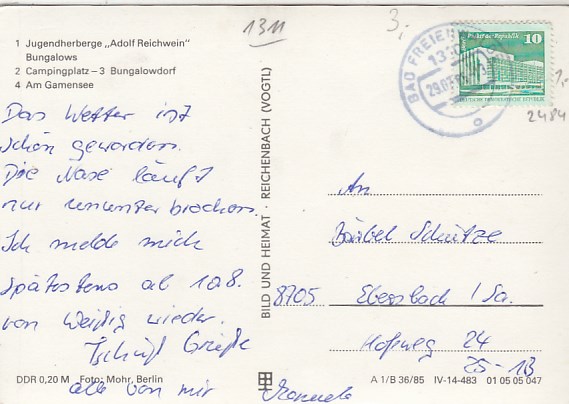 1311
3,-
1 Jugendherberge „Adolf Reichwein"
Bungalows
2 Campingplatz – 3 Bungalowdorf
4 Am Gamensee
Das Wetter ist
schön geworden.
Die Nase läuft
nur ununterbrochen.
Ich melde mich
spätestens ab 10.8.
von Weißig wieder.
Tschüß Grüße
alle von mir Manuela
DDR 0,20 M Foto: Mohr, Berlin
BILD UND HEIMAT · REICHENBACH (VOGTL)
BAD FREIEN
10
Palast der Republik
DEUTSCHE DEMOKRATISCHE REPUBLIK
1,-
2484
An
Bärbel Schütze
8705 Ebersbach / Sa.
Hofeweg 24
25-13
A 1/B 36/85 IV-14-483 01 05 05 047